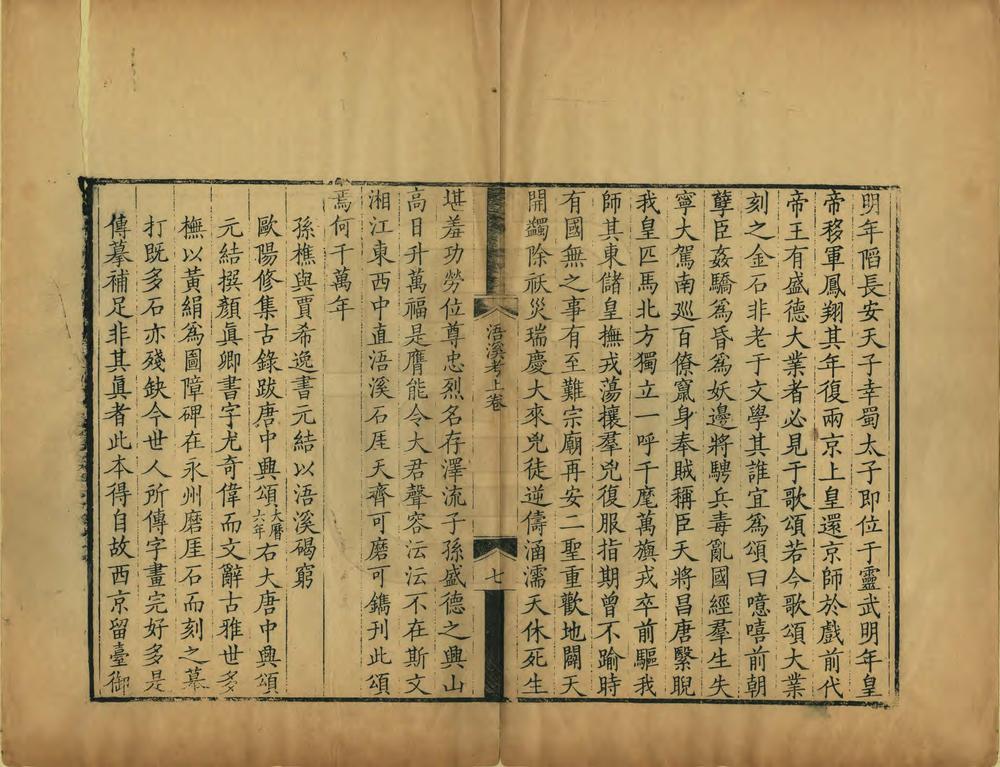 明年陷長安天子幸蜀太子即位于靈武明年皇
帝移軍鳳翔其年復兩京上皇還京師於戲前代
帝王有盛德大業者必見于歌頌若今歌頌大業
刻之金石非老于文學其誰宜爲頌曰噫嘻前朝
孽臣姦驕爲昏爲妖邊將騁兵毒亂國經羣生失
寧大駕南巡百僚竄身奉賊稱臣天將昌唐繄睨
我皇匹馬北方獨立一呼千麾萬旟戎卒前驅我
師其東儲皇撫戎蕩攘羣兇復服指期曾不踰時
有國無之事有至難宗廟再安二聖重歡地闢天
開蠲除祅災瑞慶大來兇徒逆儔涵濡天休死生
浯溪考上卷
七
堪羞功勞位尊忠烈名存澤流子孫盛德之興山
高日升萬福是膺能令大君聲容沄沄不在斯文
湘江東西中直浯溪石厓天齊可磨可鐫刊此頌
焉何千萬年
孫樵與賈希逸書元結以浯溪碣窮
歐陽修集古錄跋唐中興頌大曆六年右大唐中興頌
元結撰顏眞卿書字尤奇偉而文辭古雅世多
橅以黃絹爲圖障碑在永州磨厓石而刻之摹
打既多石亦殘缺今世人所傳字畫完好多是
傳摹補足非其眞者此本得自故西京留臺御